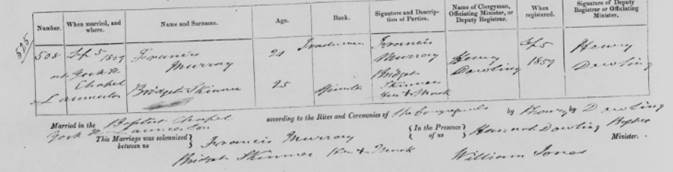 Number. When married, and where. Name and Surname. Age. Rank. Signature and Description of Parties. Name of Clergyman, Officiating Minister, or Deputy Registrar. When registered. Signature of Deputy Registrar or Officiating Minister.
505 Francis Murray Francis Murray Henry Dowling 5 1859 Henry Dowling
at York St Chapel Launceston Bridget Skinner 25 Spinster Bridget Skinner her X mark
Married in the Baptist Chapel according to the Rites and Ceremonies of by Henry Dowling
York St Launceston Baptist Minister.
This Marriage was solemnized between us Francis Murray In the Presence of us Hannah Dowling
Bridget Skinner Her X Mark William Jones